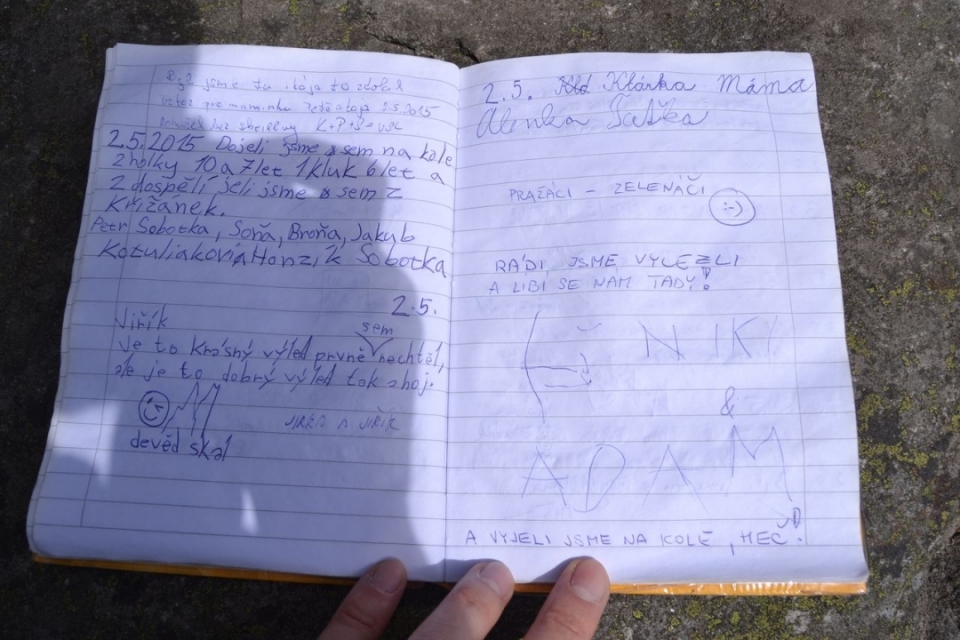 jsme tu
pro maminku 2.5.2015
K+P+J
2.5.2015 Dojeli jsme sem na kole
2 holky 10 a 7 let 1 kluk 6 let a
2 dospělí jeli jsme sem z
Křižánek.
Petr Sobotka, Soňa, Broňa, Jakub
Kotuliakovi, Honzík Sobotka
2.5.
Jiřík
Je to krásný výled prvně sem nechtěl,
ale je to dobrý výled tak ahoj.
devěd skal
JIRKA A JIŘÍK
2.5. Klárka Máma
Alenka Taťka
PRAŽÁCI - ZELENÁČI :-)
RÁDI JSME VYLEZLI
A LIBI SE NAM TADY!
NIKI
&
ADAM
A VYJELI JSME NA KOLE, HEČ!